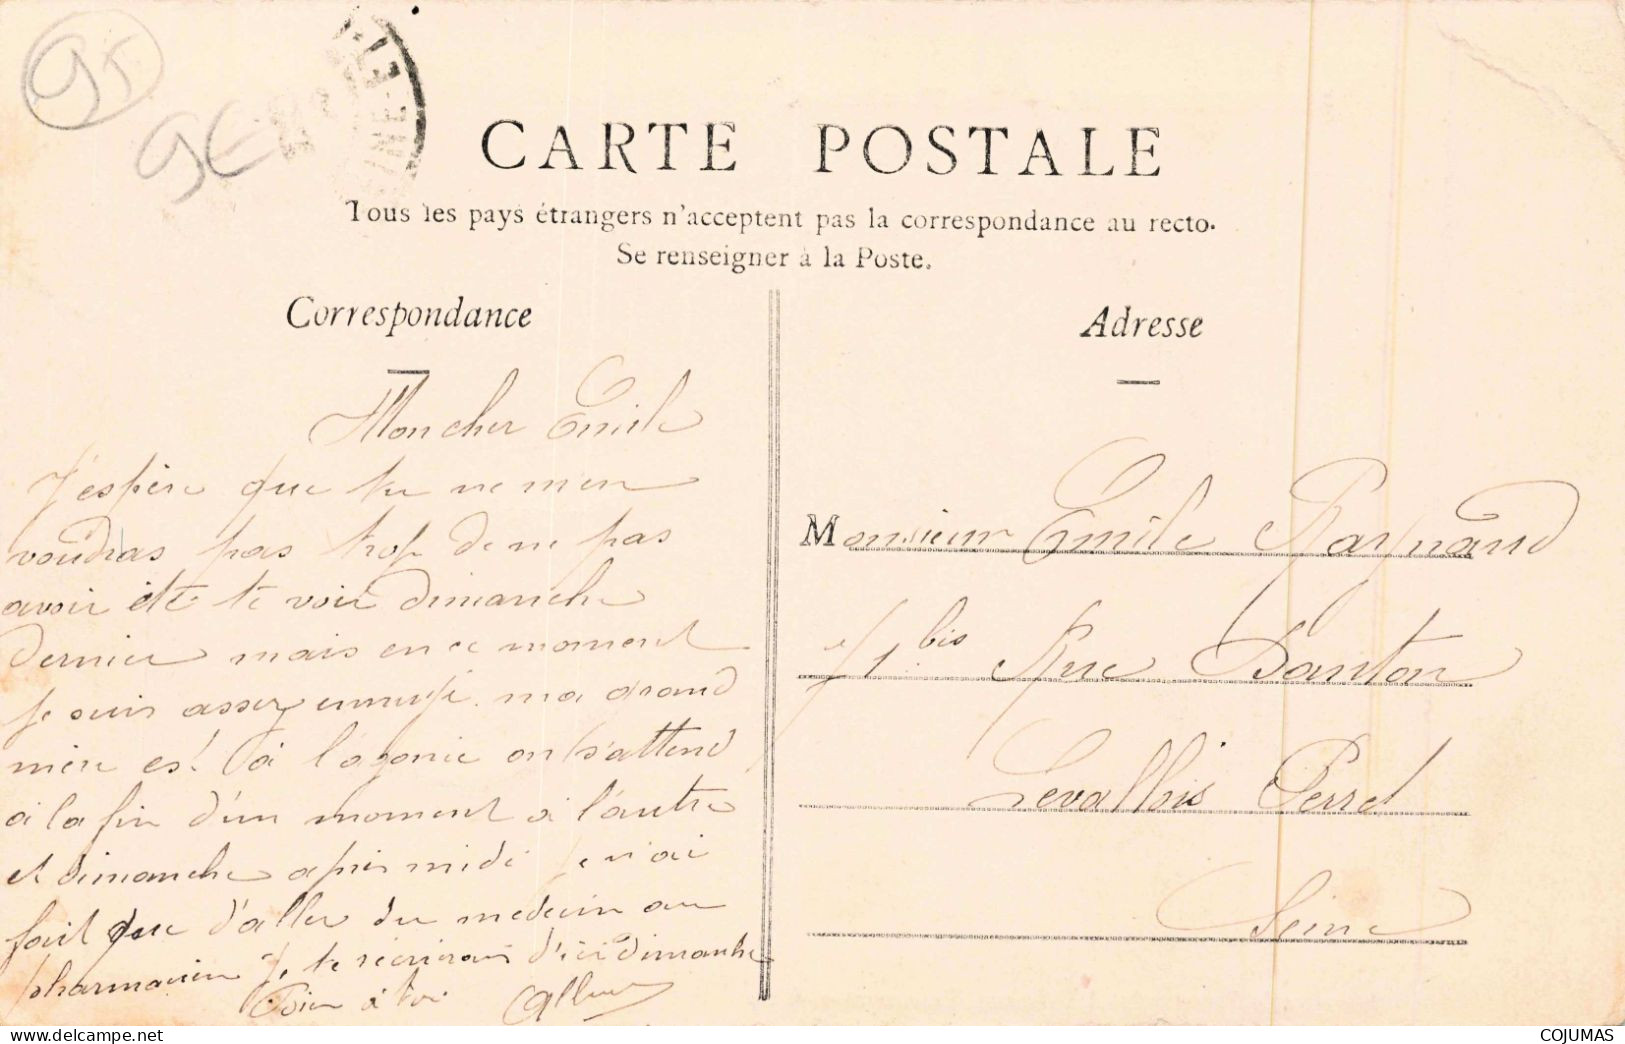 95
CARTE POSTALE
Tous les pays étrangers n'acceptent pas la correspondance au recto.
Se renseigner à la Poste.
Correspondance
Mon cher Emile
J'espère que tu ne m'en
voudras pas trop de ne pas
avoir été te voir dimanche
dernier mais en ce moment
je suis assez ennuyé ma grand
mère est à l'agonie on s'attend
à la fin d'un moment à l'autre
et dimanche après midi je n'ai
fait que d'aller du medecin au
pharmacien Je te récrirais d'ici dimanche
Bien à toi
Adresse
Monsieur Emile Raynaud
71 bis Rue Danton
Levallois Perret
Seine
COJUMAS
www.delcampe.net